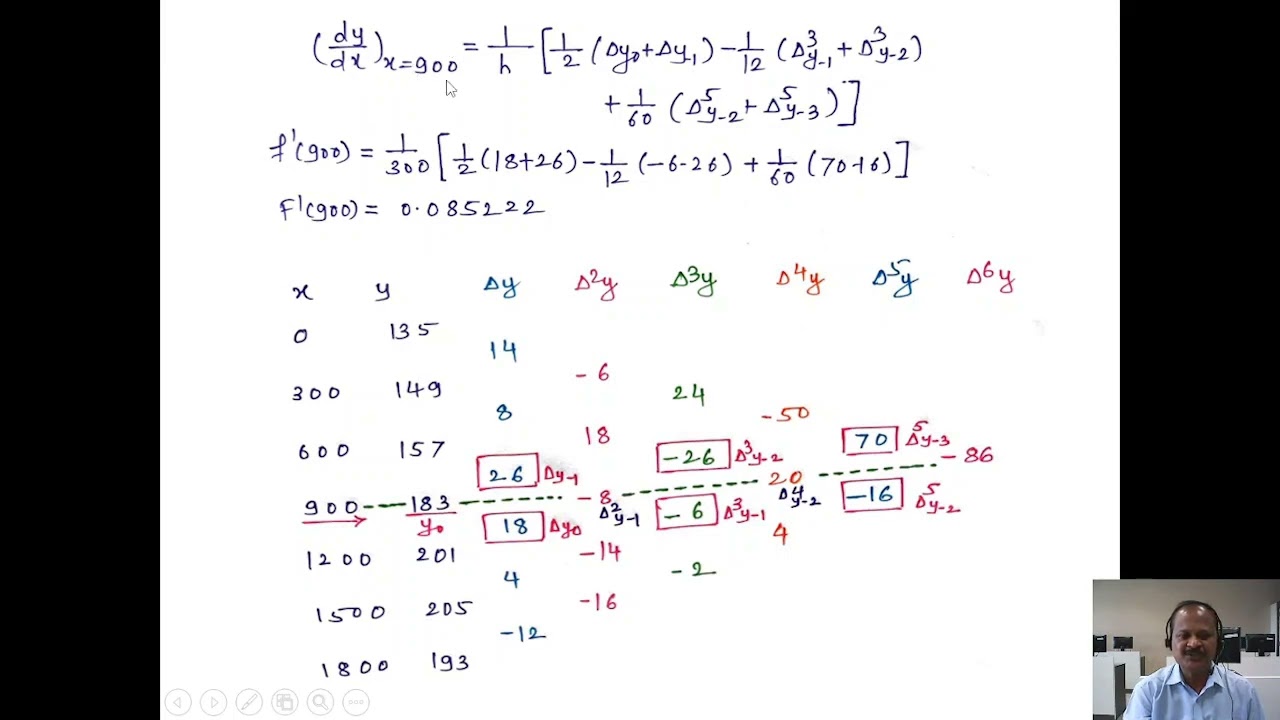 (dy/dx)x=900 = 1/h [1/2 (Δy0+Δy-1) - 1/12 (Δ³y-1 + Δ³y-2)
+ 1/60 (Δ⁵y-2 + Δ⁵y-3)]
f'(900) = 1/300 [1/2 (18+26) - 1/12 (-6-26) + 1/60 (70-16)]
F'(900) = 0.085222
x y Δy Δ2y Δ3y Δ4y Δ5y Δ6y
0 135
14
-6
300 149
24
8
-50
18
600 157
70 Δ⁵y-3
-26 Δ³y-2
-86
26 Δy-1
20
900 183
y0
-8
Δ²y-1
Δ⁴y-2
-16 Δ⁵y-2
-6 Δ³y-1
18 Δy0
4
1200 201
-14
-2
4
-16
1500 205
-12
1800 193